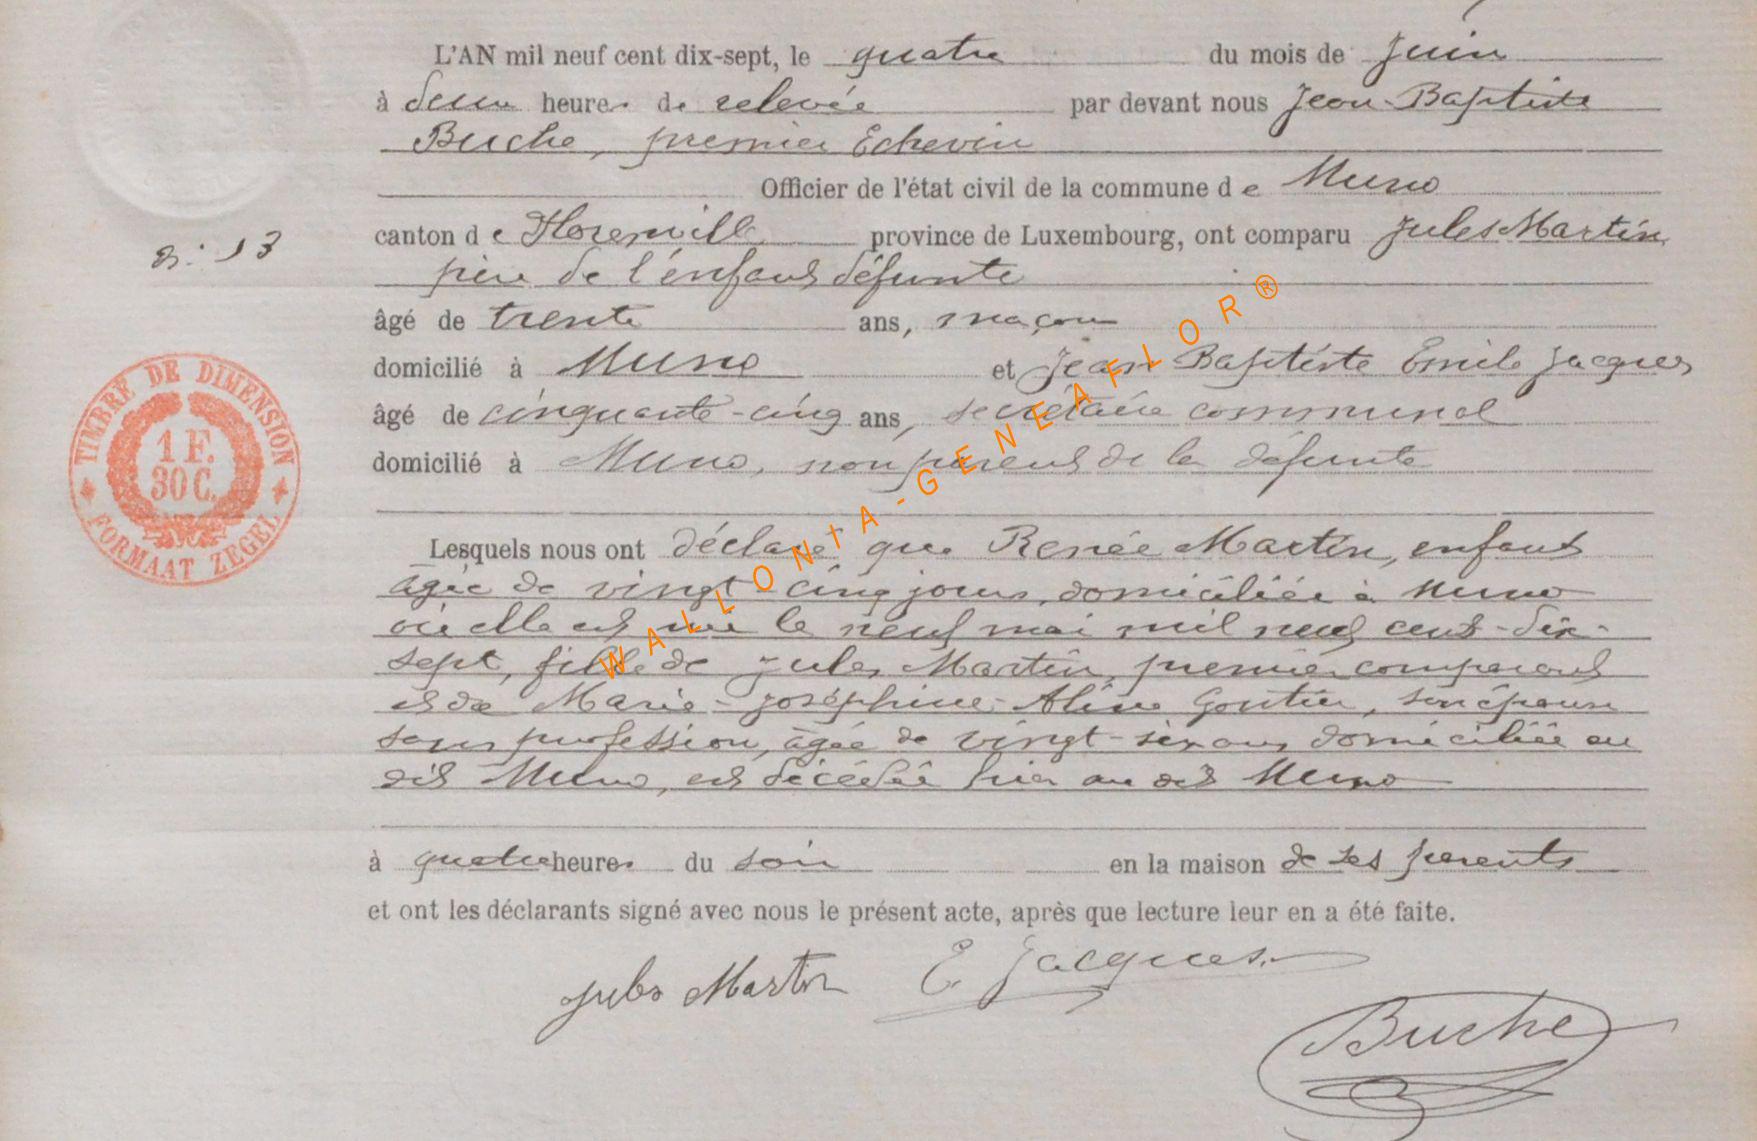 L'AN mil neuf cent dix-sept, le quatre du mois de Juin
à deux heures de relevée par devant nous Jean-Baptiste
Buche, premier Echevin
Officier de l'état civil de la commune de Muno
canton de Florenville province de Luxembourg, ont comparu Jules Martin,
n: 13
père de l'enfant défunte
âgé de trente ans, maçon
domicilié à Muno et Jean Baptiste Emile Jacques
âgé de cinquante-cinq ans, secrétaire communal
domicilié à Muno, non parent de la défunte
TIMBRE DE DIMENSION
1 F.
30 C.
FORMAAT ZEGEL
Lesquels nous ont déclaré que Renée Martin, enfant
âgée de vingt-cinq jours, domiciliée à Muno
où elle est née le neuf mai mil neuf cent-dix-
sept, fille de Jules Martin, premier comparant
et de Marie-Joséphine-Aline Gontier, son épouse
sans profession, âgée de vingt-six ans, domiciliée au
dit Muno, est décédée hier au dit Muno
à quatre heures du soir en la maison de ses parents
et ont les déclarants signé avec nous le présent acte, après que lecture leur en a été faite.
Jules Martin E. Jacques
Buche
WALLONIA-GENEAFLOR®